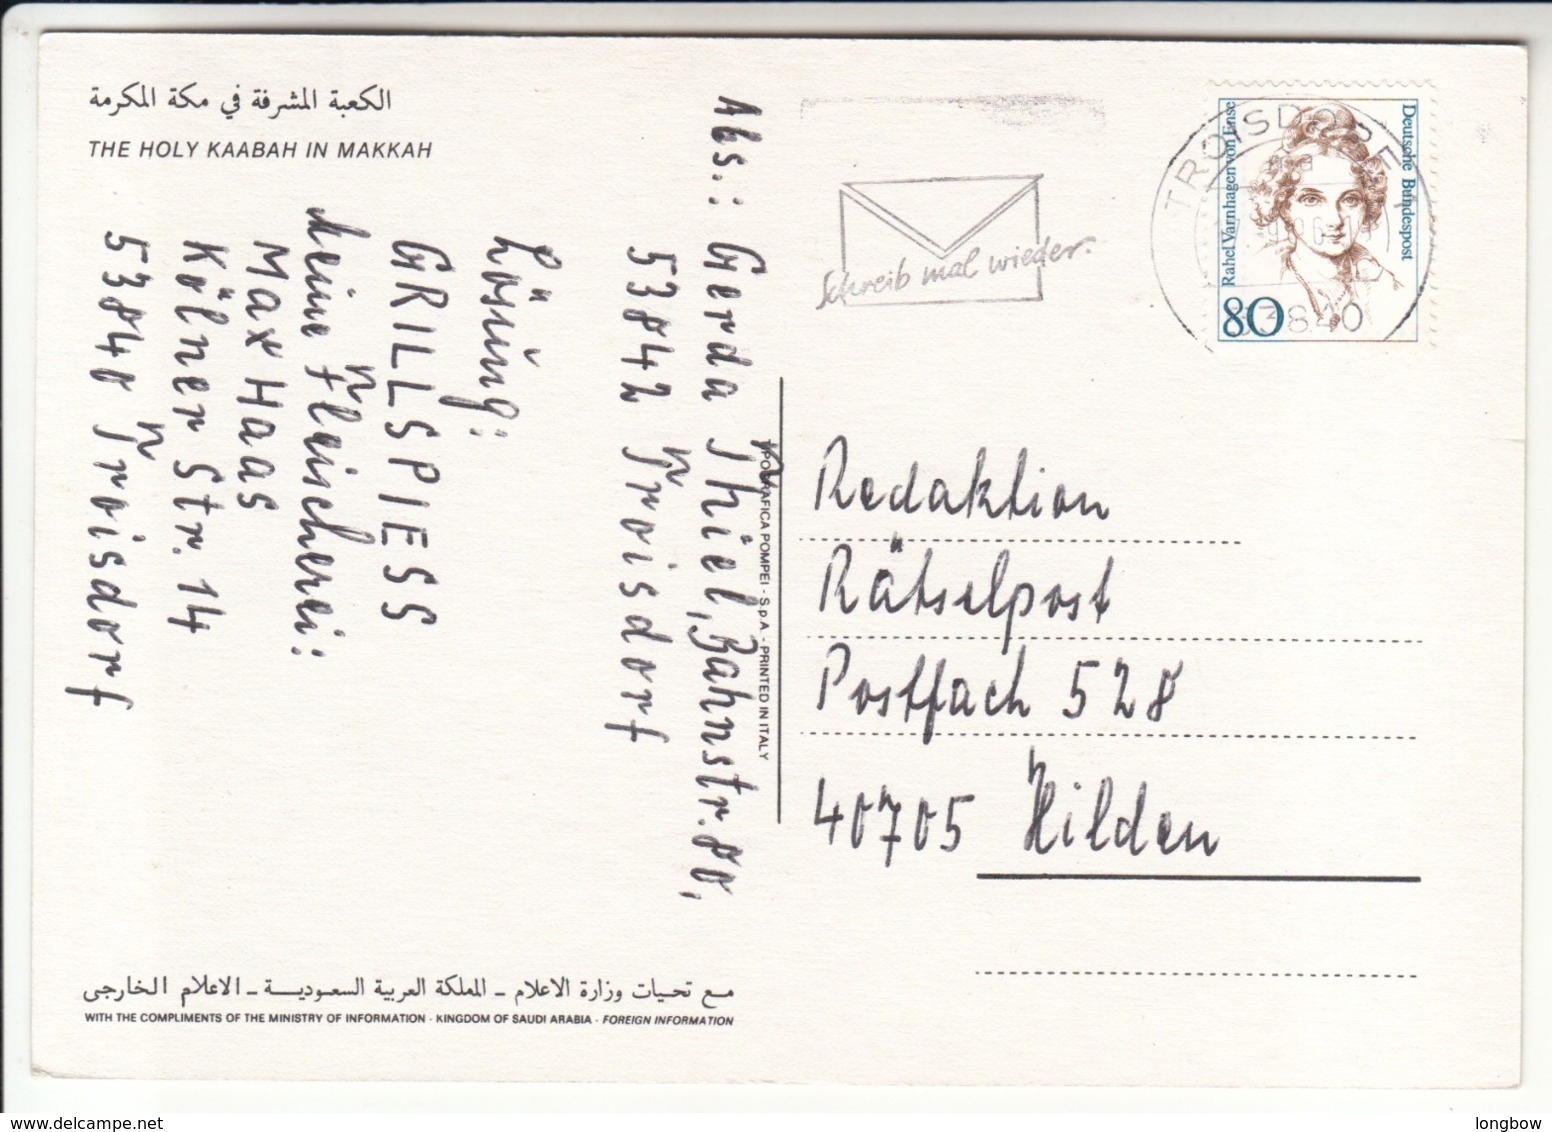 الكعبة المشرفة في مكة المكرمة
THE HOLY KAABAH IN MAKKAH
Abs.: Gerda Thiel, Bahnstr. 80,
53842 Troisdorf
Lösung:
GRILLSPIESS
deine Fleischerei:
Max Haas
Kölner Str. 14
53840 Troisdorf
مع تحيات وزارة الاعلام - المملكة العربية السعودية - الاعلام الخارجى
WITH THE COMPLIMENTS OF THE MINISTRY OF INFORMATION - KINGDOM OF SAUDI ARABIA - FOREIGN INFORMATION
GRAFICA POMPEI - S.p.A. - PRINTED IN ITALY
Schreib mal wieder.
TROISDORF 1
53840
Rahel Varnhagen von Ense
Deutsche Bundespost
80
Redaktion
Rätselpost
Postfach 528
40705 Hilden
www.delcampe.net
longbow